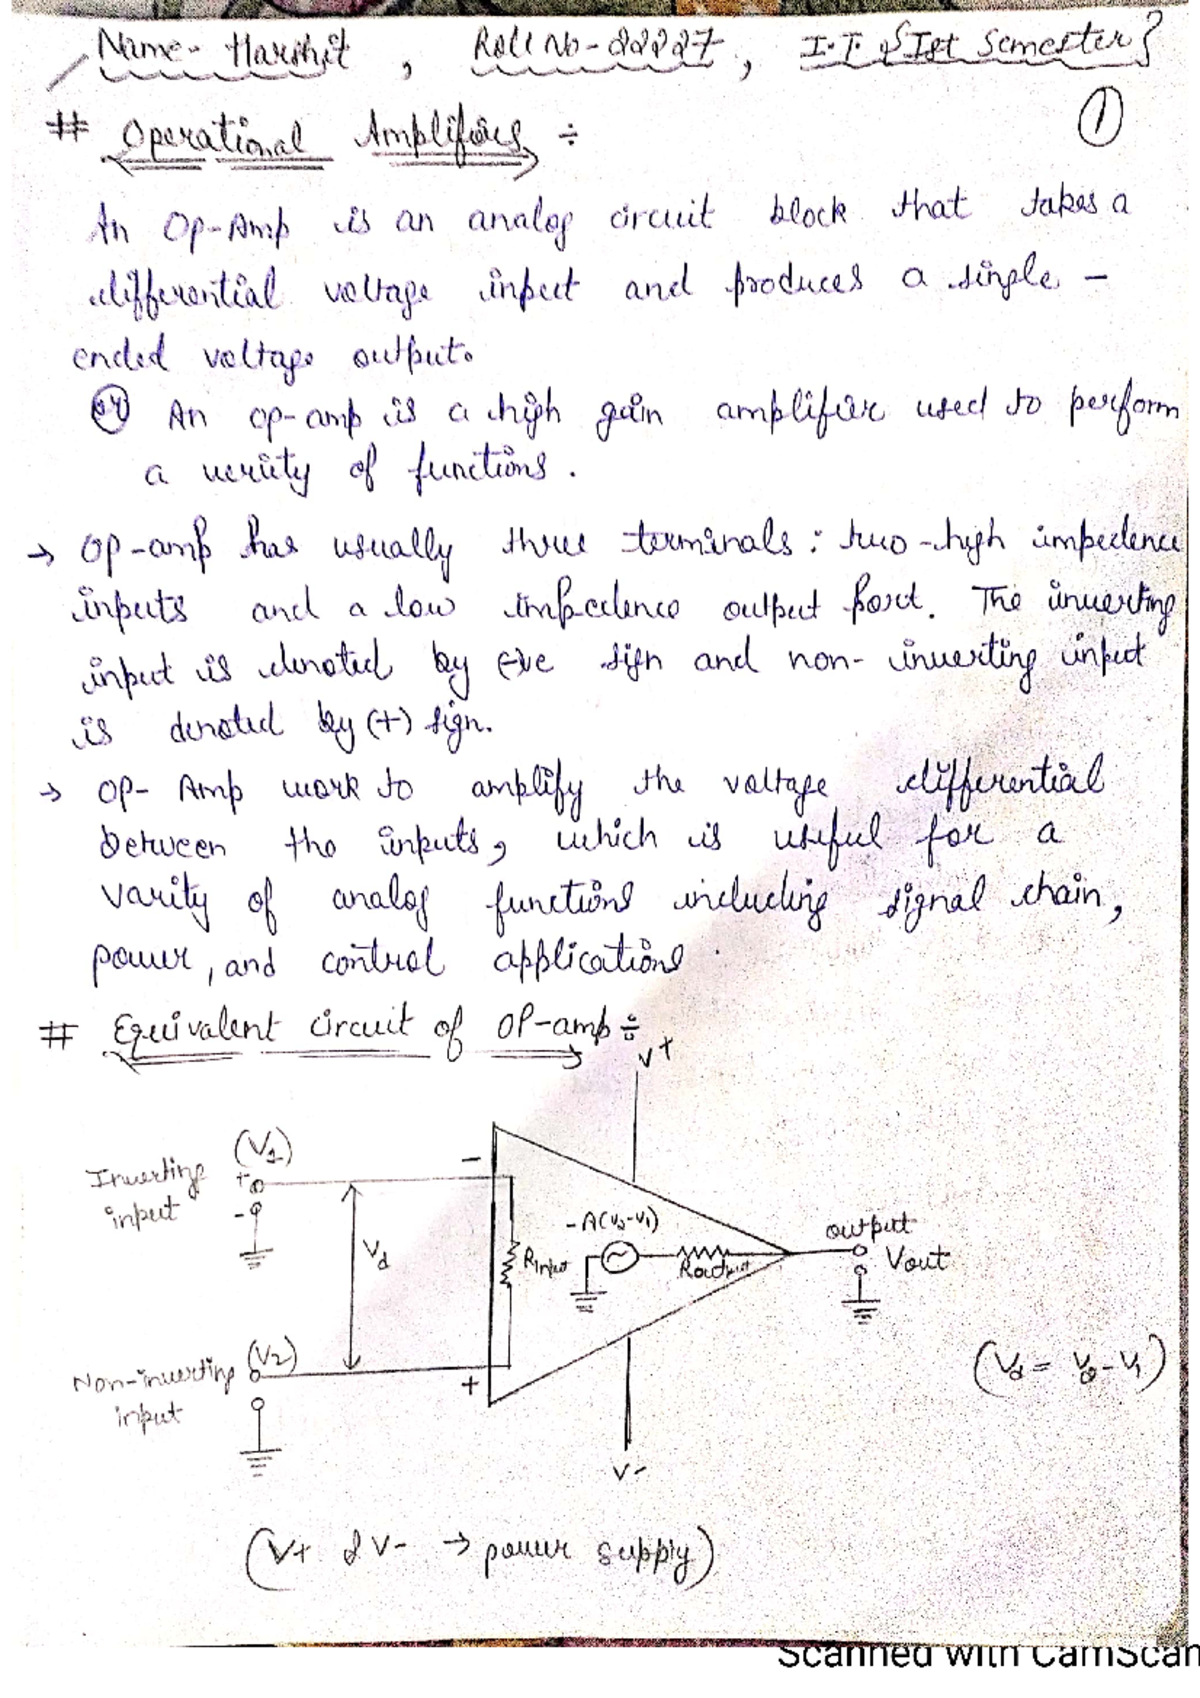 Name- Harshit , Roll No-22227, I.T. {Ist Semester}
1
# Operational Amplifiers ÷
An Op-Amp is an analog circuit block that takes a
differential voltage input and produces a single -
ended voltage output.
or An op-amp is a high gain amplifier used to perform
a veriity of functions.
→ Op-amp has usually three terminals : two-high impedence
inputs and a low impedence output port. The inverting
input is denoted by (-)ve sign and non-inverting input
is denoted by (+) sign.
→ OP-Amp work to amplify the voltage differential
between the inputs, which is useful for a
varity of analog functions including signal chain,
power, and control applications.
# Equivalent circuit of OP-amp ÷
V+
Inverting input
(V1)
+
-
-
Vd
Rinput
-A(V2-V1)
Routput
output
Vout
Non-inverting input
(V2)
+
(Vd = V2-V1)
V-
(V+ & V- → power supply)
Scanned with CamScan